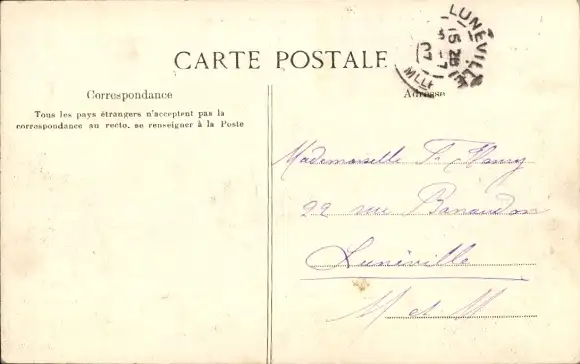 CARTE POSTALE
LUNÉVILLE
15 28
Correspondance
Adresse
Tous les pays étrangers n'acceptent pas la
correspondance au recto. se renseigner à la Poste
Mademoiselle F.
22 rue Banaudon
Lunéville
M et M